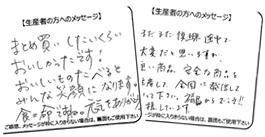 【生産者の方へのメッセージ】
まとめ買いしたいくらい
おいしかったです!
おいしいものたべると
みんな笑顔になります。
食=命の源。元気をありがとう
ご感想、メッセージが枠に入りきらない場合は、裏面もご使用下さい
【生産者の方へのメッセージ】
まだまだ復興途中で
大変だと思いますが、
良い商品、安全な商品を
生産して、全国に発信して
下さい。
応援しています。
ご感想、メッセージが枠に入りきらない場合は、裏面もご使用下さい